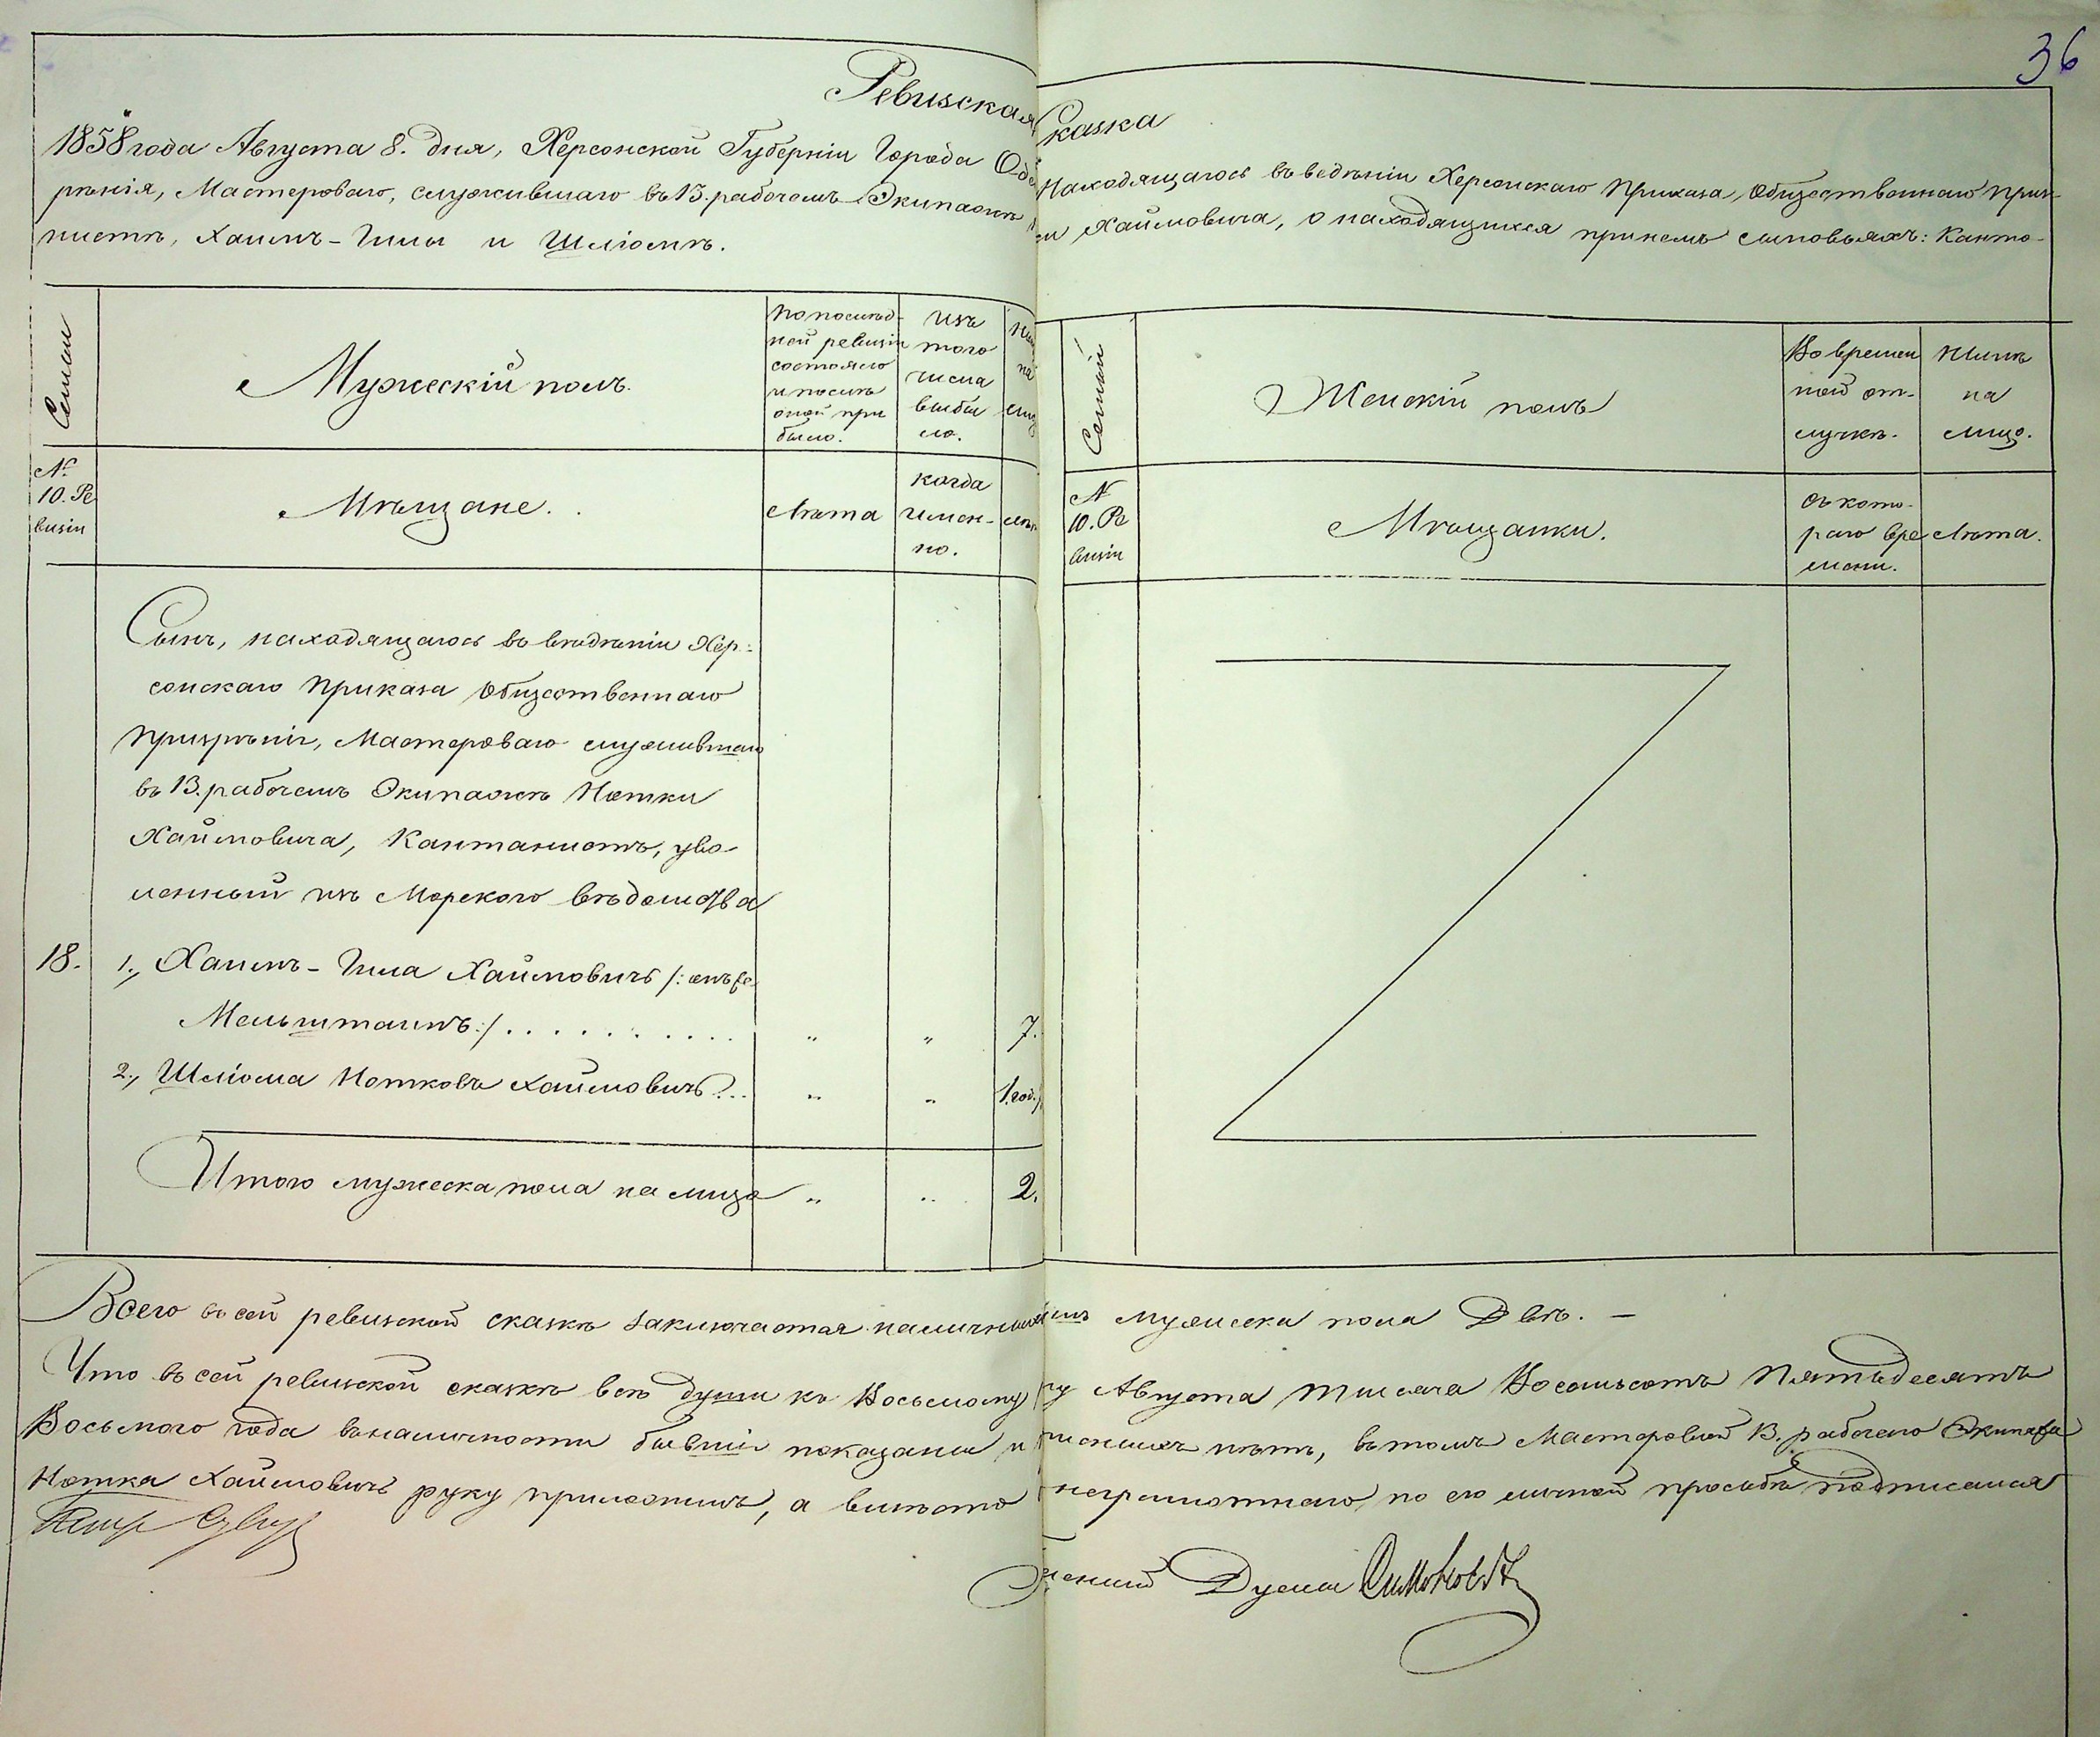 36
Ревизская Сказка
1858 года Августа 8. дня, Херсонской Губерніи Города Оде находящагося въ веденіи Херсонскаго Приказа Общественнаго При
рѣнія, Мастероваго, служившаго въ 13. рабочемъ Экипажѣ Хаймовича, о находящихся принемъ сыновьяхъ: Канто-
нистѣ, Хаимъ-Гилы и Шліомѣ.
Семьи
Мужескій полъ.
по послѣд-
ней ревизіи
состояло
и послѣ
оной при
было.
Изъ
того
числа
выбы
ло.
Семьи
Женскій полъ
Во времен
ной от-
лучкѣ.
Нынѣ
на
лицо.
№
10. Ре
визіи
Мѣщане.
Лѣта
когда
имен-
но.
№
10. Ре
визіи
Мѣщанки.
съ кото-
раго вре
мени.
Лѣта.
Сынъ, находящагося въ вѣдѣніи Хер-
сонскаго Приказа Общественнаго
Призрѣнія, Мастероваго служившаго
въ 13. рабочемъ Экипажѣ Нотки
Хаймовича, Кантонистъ, уво-
ленный изъ Морского вѣдомства
18. 1., Хаимъ-Гила Хаймовичъ /: онъ же
Мельштаинъ:/ .......... " " 7.
2., Шліома Нотковъ Хаймовичъ... " " 1. год.
Итого мужеска пола на лицо " " 2.
Всего въ сей ревизской сказкѣ заключается наличныхъ мужеска пола Двѣ. —
Что въ сей ревизской сказкѣ всѣ души къ Восьмому Августа тысяча Восемьсотъ Пятьдесятъ
Восьмого года въ наличности бывшіе показаны и нѣтъ, въ томъ Мастеровой 13. рабочего Экипажа
Нотка Хаймовичъ руку приложилъ, а вмѣсто неграмотнаго, по его личной просьбѣ подписался